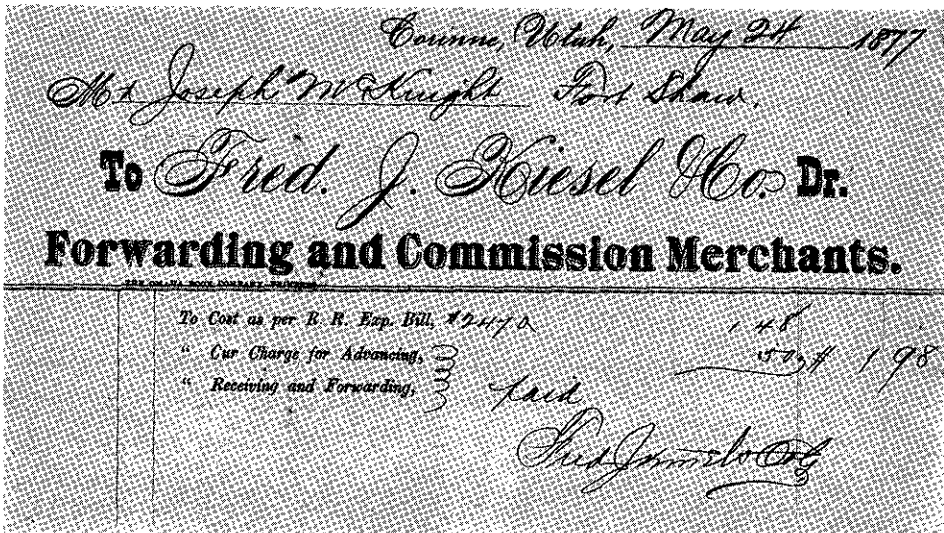 Corinne, Utah, May 24 1877
Mr Joseph McKnight Fort Shaw.
To Fred. J. Kiesel & Co. Dr.
Forwarding and Commission Merchants.
To Cost as per R. R. Exp. Bill, #2470 1 48
" Our Charge for Advancing, 50 $ 1 98
" Receiving and Forwarding,
Paid
Fred